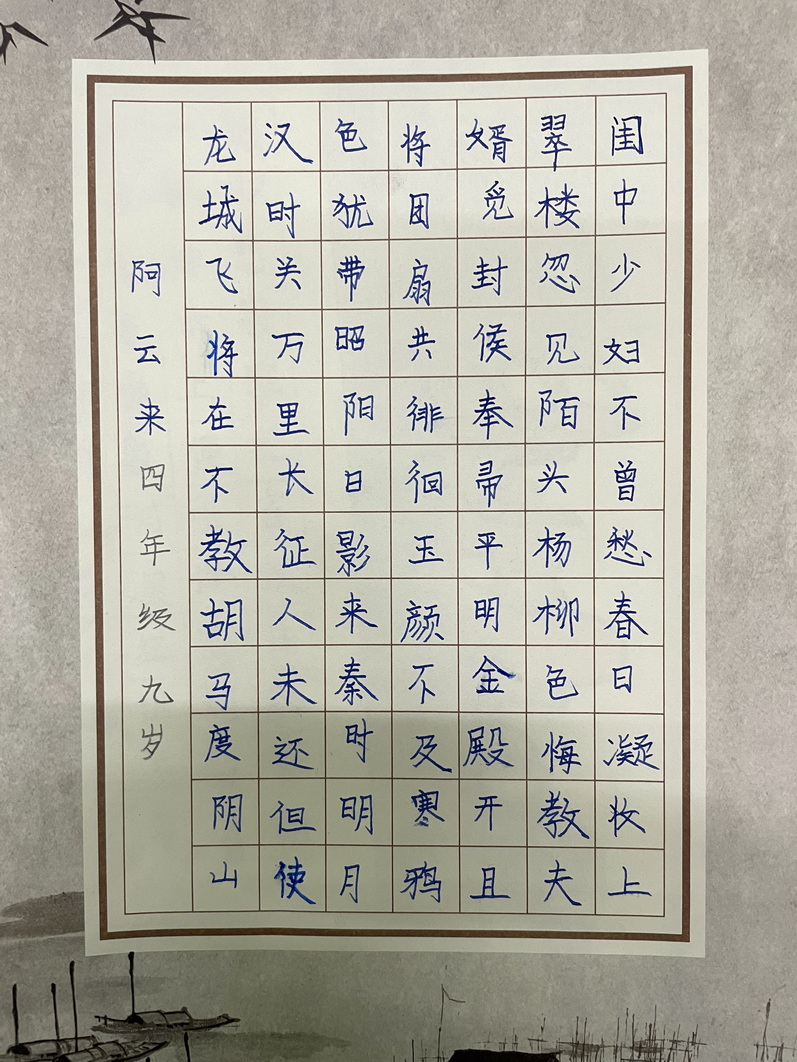 闺中少妇不曾愁春日凝妆上
翠楼忽见陌头杨柳色悔教夫
婿觅封侯奉帚平明金殿开且
将团扇共徘徊玉颜不及寒鸦
色犹带昭阳日影来秦时明月
汉时关万里长征人未还但使
龙城飞将在不教胡马度阴山
阿云来四年级九岁